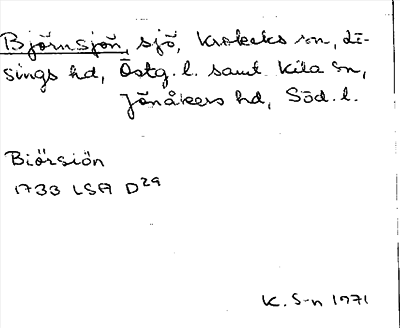 Björnsjön, sjö, Krokeks sn, Lö-
sings hd, Östg. l. samt Kila sn,
Jönåkers hd, Söd. l.
Biörsiön
1733 LSA D29
K. S-n 1971